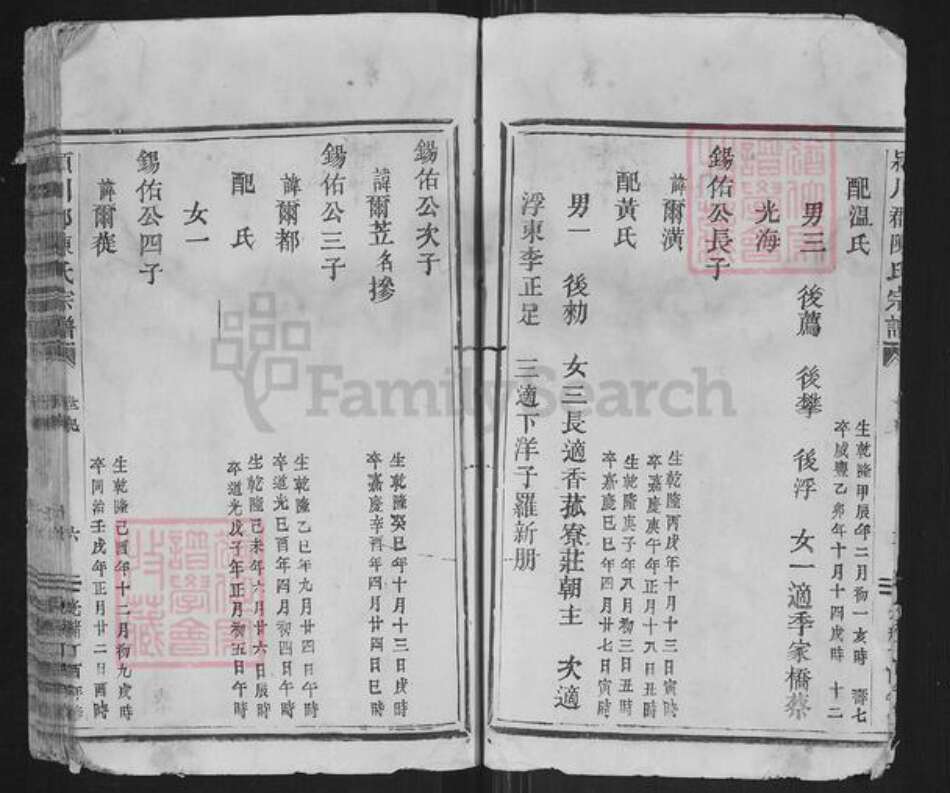 潁川郡陳氏宗譜
配温氏
生乾隆甲辰年二月初一亥時 壽七
卒咸豐乙卯年十月十四戌時 十二
男三 後薦 後攀 後浮 女一適季家橋蔡
光海
錫佑公長子
諱爾潢
生乾隆丙戌年十月十三日寅時
卒嘉慶庚午年正月十八日丑時
配黃氏
生乾隆庚子年八月初三日丑時
卒嘉慶己巳年四月廿七日寅時
男一 後勑 女三長適香菰寮莊朝主 次適
浮東李正足 三適下洋子羅新朋
錫佑公次子
諱爾苙名摻
生乾隆癸巳年十月十三日戌時
卒嘉慶辛酉年四月廿四日巳時
錫佑公三子
諱爾都
生乾隆乙巳年九月廿四日午時
卒道光己酉年四月初四日午時
配 氏
生乾隆己未年六月廿六日辰時
卒道光戊子年正月初五日午時
女一
錫佑公四子
諱爾蓰
生乾隆己酉年十二月初九戌時
卒同治壬戌年正月廿二日酉時
潁川郡陳氏宗譜
六
FamilySearch